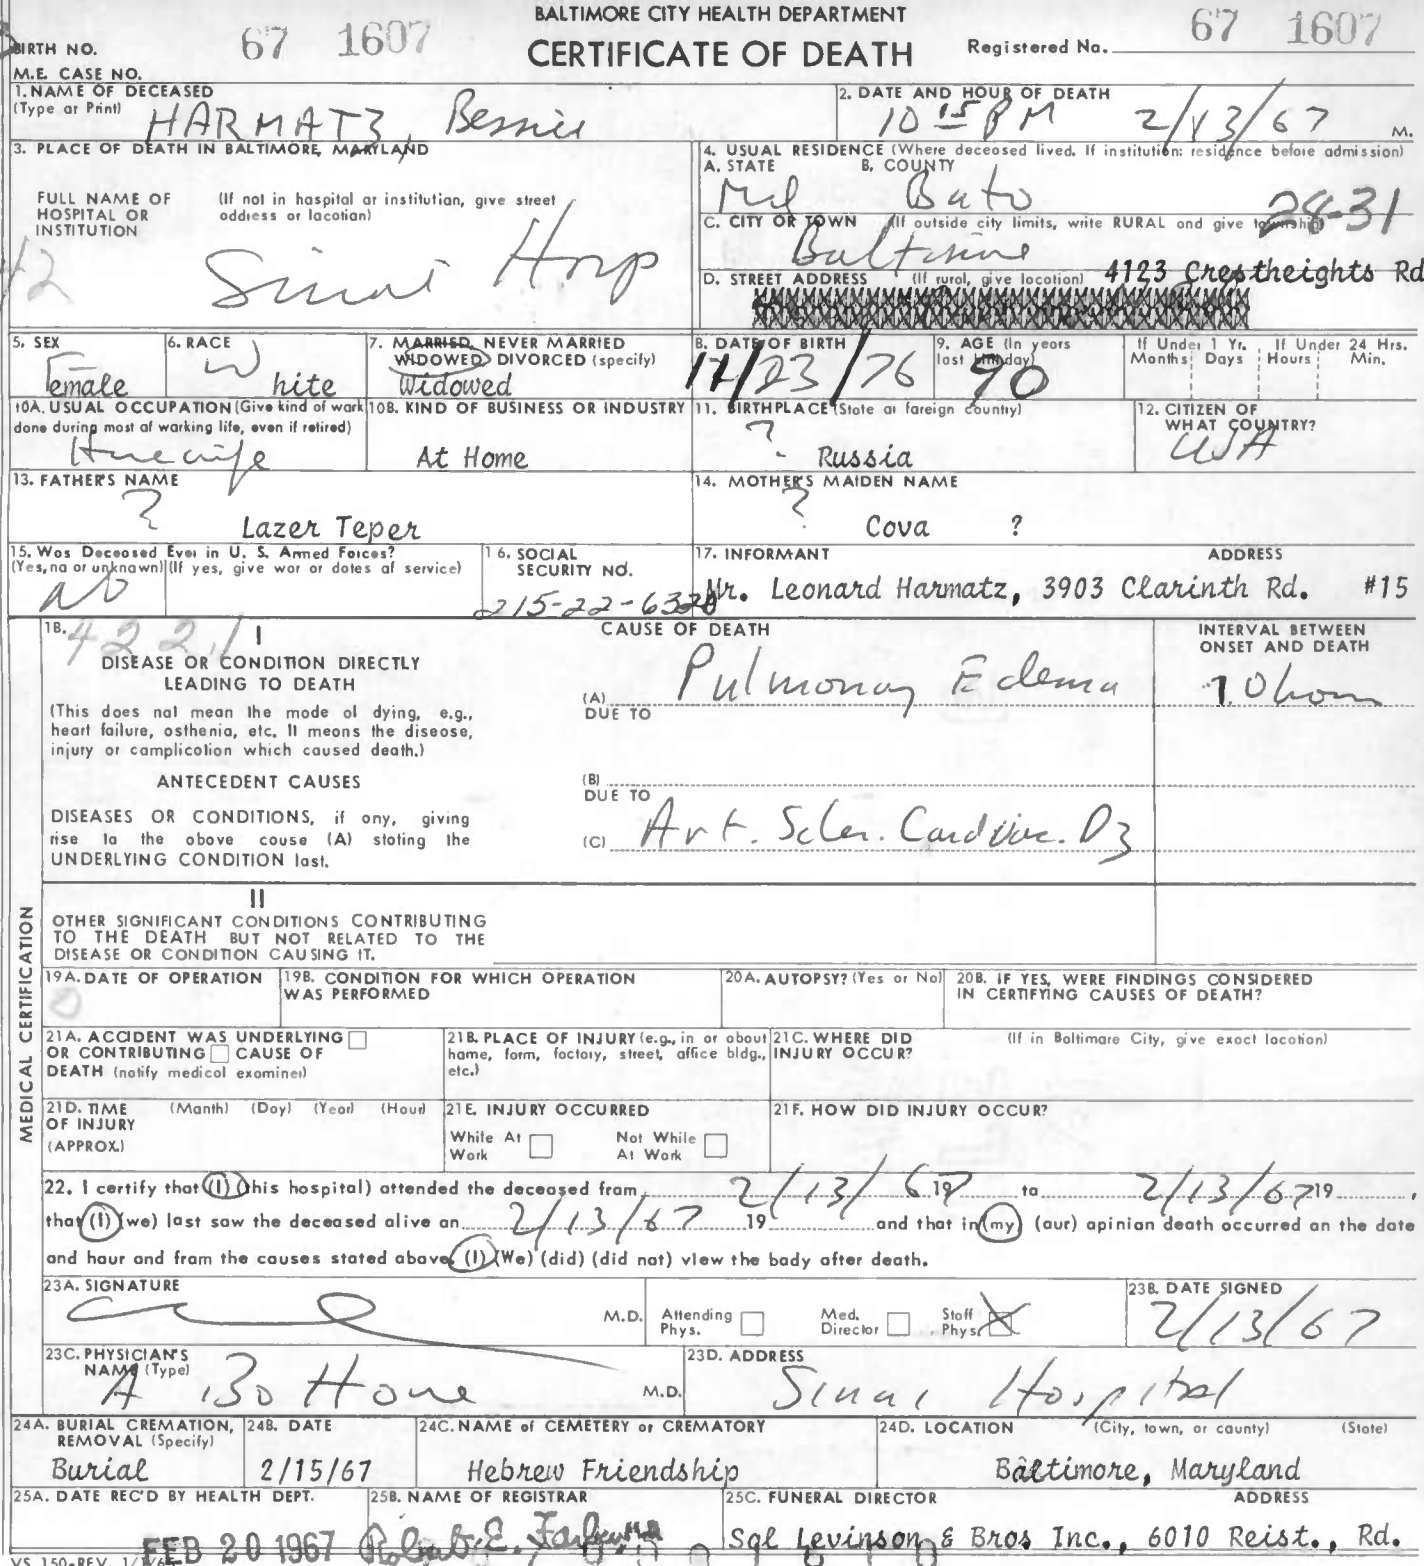 BALTIMORE CITY HEALTH DEPARTMENT
CERTIFICATE OF DEATH
BIRTH NO. 67 1607
Registered No. 67 1607
M.E. CASE NO.
1. NAME OF DECEASED
(Type or Print) HARMATZ, Bessie
2. DATE AND HOUR OF DEATH
10 15 PM 2/13/67 M.
3. PLACE OF DEATH IN BALTIMORE, MARYLAND
FULL NAME OF HOSPITAL OR INSTITUTION
(If not in hospital or institution, give street address or location)
42
Sinai Hosp
4. USUAL RESIDENCE (Where deceased lived. If institution: residence before admission)
A. STATE B. COUNTY
Md Bato
28-31
C. CITY OR TOWN (If outside city limits, write RURAL and give township)
Baltimore
D. STREET ADDRESS (If rural, give location) 4123 Crestheights Rd
5. SEX
Female
6. RACE
White
7. MARRIED, NEVER MARRIED
WIDOWED, DIVORCED (specify)
Widowed
8. DATE OF BIRTH
12/23/76
9. AGE (In years last birthday)
90
If Under 1 Yr. If Under 24 Hrs.
Months Days Hours Min.
10A. USUAL OCCUPATION (Give kind of work done during most of working life, even if retired)
Housewife
10B. KIND OF BUSINESS OR INDUSTRY
At Home
11. BIRTHPLACE (State or foreign country)
? Russia
12. CITIZEN OF WHAT COUNTRY?
USA
13. FATHER'S NAME
? Lazer Teper
14. MOTHER'S MAIDEN NAME
? Cova ?
15. Was Deceased Ever in U. S. Armed Forces?
(Yes, no or unknown) (If yes, give war or dates of service)
NO
16. SOCIAL SECURITY NO.
215-22-6320
17. INFORMANT ADDRESS
Mr. Leonard Harmatz, 3903 Clarinth Rd. #15
MEDICAL CERTIFICATION
18. 422.1 I
CAUSE OF DEATH
INTERVAL BETWEEN ONSET AND DEATH
DISEASE OR CONDITION DIRECTLY
LEADING TO DEATH
(This does not mean the mode of dying, e.g.,
heart failure, asthenia, etc. It means the disease,
injury or complication which caused death.)
(A) Pulmonary Edema
DUE TO
10 hours
ANTECEDENT CAUSES
DISEASES OR CONDITIONS, if any, giving
rise to the above cause (A) stating the
UNDERLYING CONDITION last.
(B)
DUE TO
(C) Art. Scler. Cardvasc. Dz
II
OTHER SIGNIFICANT CONDITIONS CONTRIBUTING
TO THE DEATH BUT NOT RELATED TO THE
DISEASE OR CONDITION CAUSING IT.
19A. DATE OF OPERATION
0
19B. CONDITION FOR WHICH OPERATION WAS PERFORMED
20A. AUTOPSY? (Yes or No)
20B. IF YES, WERE FINDINGS CONSIDERED IN CERTIFYING CAUSES OF DEATH?
21A. ACCIDENT WAS UNDERLYING
OR CONTRIBUTING CAUSE OF
DEATH (notify medical examiner)
21B. PLACE OF INJURY (e.g., in or about home, farm, factory, street, office bldg., etc.)
21C. WHERE DID INJURY OCCUR? (If in Baltimore City, give exact location)
21D. TIME OF INJURY (APPROX.) (Month) (Day) (Year) (Hour)
21E. INJURY OCCURRED
While At Work Not While At Work
21F. HOW DID INJURY OCCUR?
22. I certify that (I) (this hospital) attended the deceased from 2/13/67 19 to 2/13/67 19 ,
that (I) (we) last saw the deceased alive on 2/13/67 19 and that in (my) (our) opinion death occurred on the date
and hour and from the causes stated above. (I) (We) (did) (did not) view the body after death.
23A. SIGNATURE
M.D. Attending Phys. Med. Director Staff Phys.
23B. DATE SIGNED
2/13/67
23C. PHYSICIAN'S NAME (Type)
M.D.
23D. ADDRESS
Sinai Hospital
24A. BURIAL CREMATION, REMOVAL (Specify)
Burial
24B. DATE
2/15/67
24C. NAME of CEMETERY or CREMATORY
Hebrew Friendship
24D. LOCATION (City, town, or county) (State)
Baltimore, Maryland
25A. DATE REC'D BY HEALTH DEPT.
FEB 20 1967
25B. NAME OF REGISTRAR
Robert E. Farber, MD
25C. FUNERAL DIRECTOR ADDRESS
Sol Levinson & Bros Inc., 6010 Reist., Rd.
VS 150-REV.